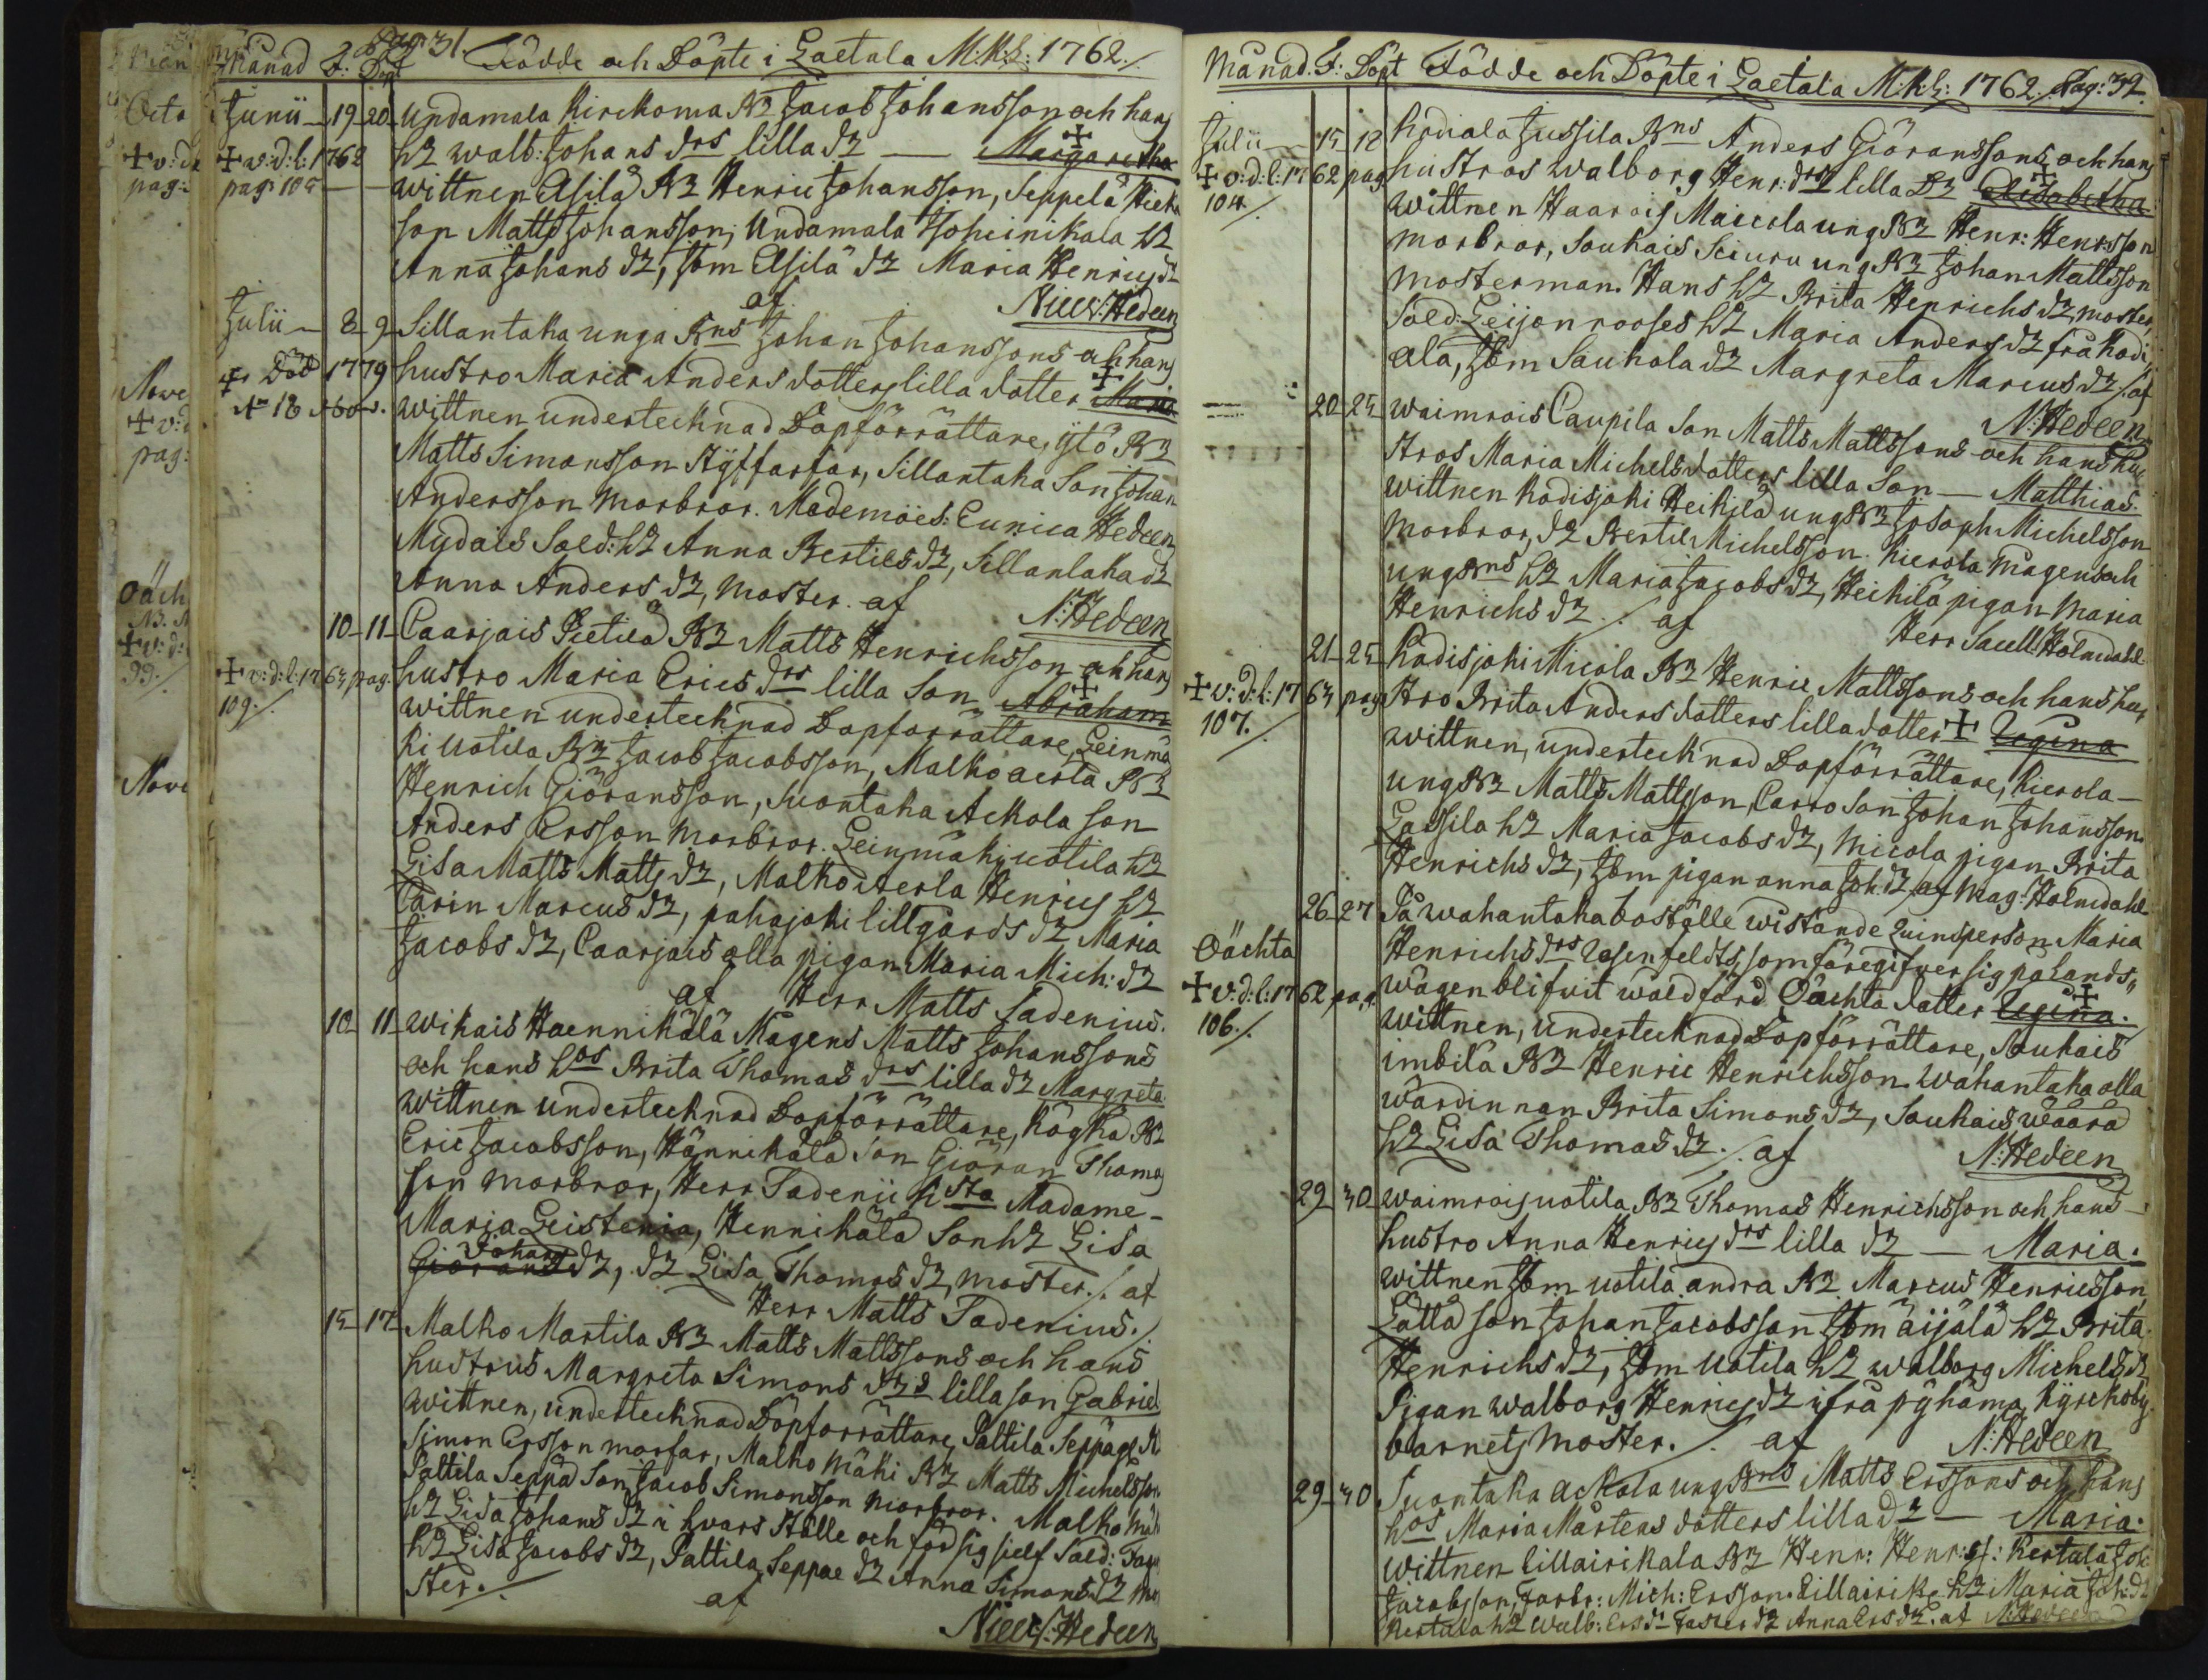 Pag: 31.
Månad F: Döpt Födde och Döpte i Laetala M:K:L: 1762./
Junii 19 20 Undamala Kirckoma B2 Jacob Johansson och hans
+ v:d:l: 1762 h2 Walb: Johans drs lilla d2 — Margaretha
pag: 105 Wittnen Asilä B2 Henric Johansson, Seppelä
son Matts Johansson, Undamala h2
Anna Johans d2, Asilä d2 Maria Henrics d2
af Niels: Hedeen
Julii 8 9 Sillantaka unga Bns Johan Johanssons och hans
+ Död 1779 hustro Maria Anders dotters lilla dotter Maria
wittnen undertecknad Döpförrättare, ytö B2
Matts Simonsson Styffarfar, Sillantaka Son Johan
Andersson morbror. Mademois: Eunica Hedeen
Mydais Sold: h2 Anna Bertils d2, Sillantaka d2
Anna Anders d2, moster. af N: Hedeen
10 11 Caarjais Pietilä B2 Matts Henrichsson och hans
+ v:d:l: 1763 pag. hustro Maria Erics drs lilla Son Abraham
109./ wittnen undertecknad Döpförrättare, Leinmä
ki Uotila B2 Jacob Jacobsson, Malko aerla B2
Henrich Giöransson, Suontaka Ackola son
Anders Ersson morbror. Leinmäki uotila h2
Lisa Matts Matts d2, Malko Aerla Henrics h2
Carin Marcus d2, pahajoki lillgårds d2 Maria
Jacobs d2, Caarjais olla pigan Maria Mich: d2
af Herr Matts Tadenius.
10 11 Wikais Haennikälä Mågens Matts Johanssons
och hans hos Brita Thomas drs lilla d2 Margreta
wittnen undertecknad Döpförrättare, B2
Eric Jacobsson, Hännikälä Son Giöran Thomas
son morbror, Herr Tadenii hsta Madame
Maria Geistenia, Hennikälä Son h2 Lisa
Johans
Giörans d2, d2 Lisa Thomas d2, moster./. af
Herr Matts Tadenius./.
15 17 Malko Martila B2 Matts Mattssons och hans
hustrus Margreta Simons d2s lilla son Gabriel
Wittnen, undertecknad Döpförrättare, Pattila Seppä B
Simon Ersson morfar, Malko Mäki B2 Matts Michelsson
Pattila Seppä Son Jacob Simonsson morbror. Malko Mäki
h2 Lisa Johans d2 i hvars ställe och för sig sielf Sold:
h2 Lisa Jacobs d2, Pattila Seppae d2 Anna Simons d2 mo
ster./. af
Niels: Hedeen
Månad. F: Döpt Födde och Döpte i Laetala M:K:L: 1762. Pag: 32.
Julii 15 18 Kodiala Jussila Bns Anders Giöranssons och hans
+ v:d:l: 1762 pag hustros Walborg Henr: drs lilla d2 Elisabetha
104./ Wittnen Haarois Maicola ung B2 Henr: Henrsson
morbror, Soukais Sciuru ung B2 Johan Mattsson
mosterman. Hans h2 Brita Henrichs d2 moster,
Sold: Leijonrooses h2 Maria Anders d2 från Kodi
ala, Soukola d2 Margreta Marcus d2./. af
N: Hedeen
20 25 Waimrois Caupila Son Matts Mattssons och hans hu
stros Maria Michelsdotters lilla Son — Matthias.
Wittnen Kodisjoki Heickilä ung B2 Josaph Michelsson
morbror, d2 Bertil Michelsson. Kierola mågens och
ung Bns h2 Maria Jacobs d2, Heickilä pigan Maria
Henrichs d2 ./. af Herr Saell Holmdahl
21 25 Kodisjoki Nicola B2 Henric Mattssons och hans hu
+ v:d:l: 1763 pag stro Brita Anders dotters lilla dotter + Regina
107./ wittnen, undertecknad Döpförrättare, Kierola
ung B2 Matts Mattsson, Carro Son Johan Johansson.
Lassila h2 Maria Jacobs d2, Nicola pigan Brita
Henrichs d2, pigan anna Joh: d2 / af Mag: Holmdahl
26 27 På Wahantaka boställe wistande Qvinsperson Maria
Oächta Henrichs drs Rosenfeldts, som föregifver sig på Lands„
+ v:d:l: 1762 pag. wägen blifvit wåldförd Oächta dotter Regina.
106./ Wittnen, undertecknad Döpförrättare, Soukais
imbilä B2 Henric Henrichsson. Wahantaka olla
wärdinnan Brita Simons d2, Soukais Waara
h2 Lisa Thomas d2 ./. af N: Hedeen
29 30 Waimrois uotila B2 Thomas Henrichsson och hans
hustro Anna Henrics drs lilla d2 — Maria.
wittnen uotila andra B2 Marcus Henricsson,
Lättä son Johan Jacobsson äijälä h2 Brita
Henrichs d2, Uotila h2 Walborg Michels d2
Pigan Walborg Henrics d2 ifrå pyhäma Kyrckoby
barnets moster./. af N: Hedeen
29 30 Suontaka Ackola ung Bns Matts Erssons och hans
hos Maria Mårtens dotters lilla d2 — Maria.
Wittnen Lillairikala B2 Henr: Henr: s: Kertala Joh:
Jacobsson, Farbr: Mich: Ersson. Lillairik: h2 Maria Joh: d2
Kertala h2 Walb: Ers d2 Faster d2 Anna Ers d2. af N: Hedeen